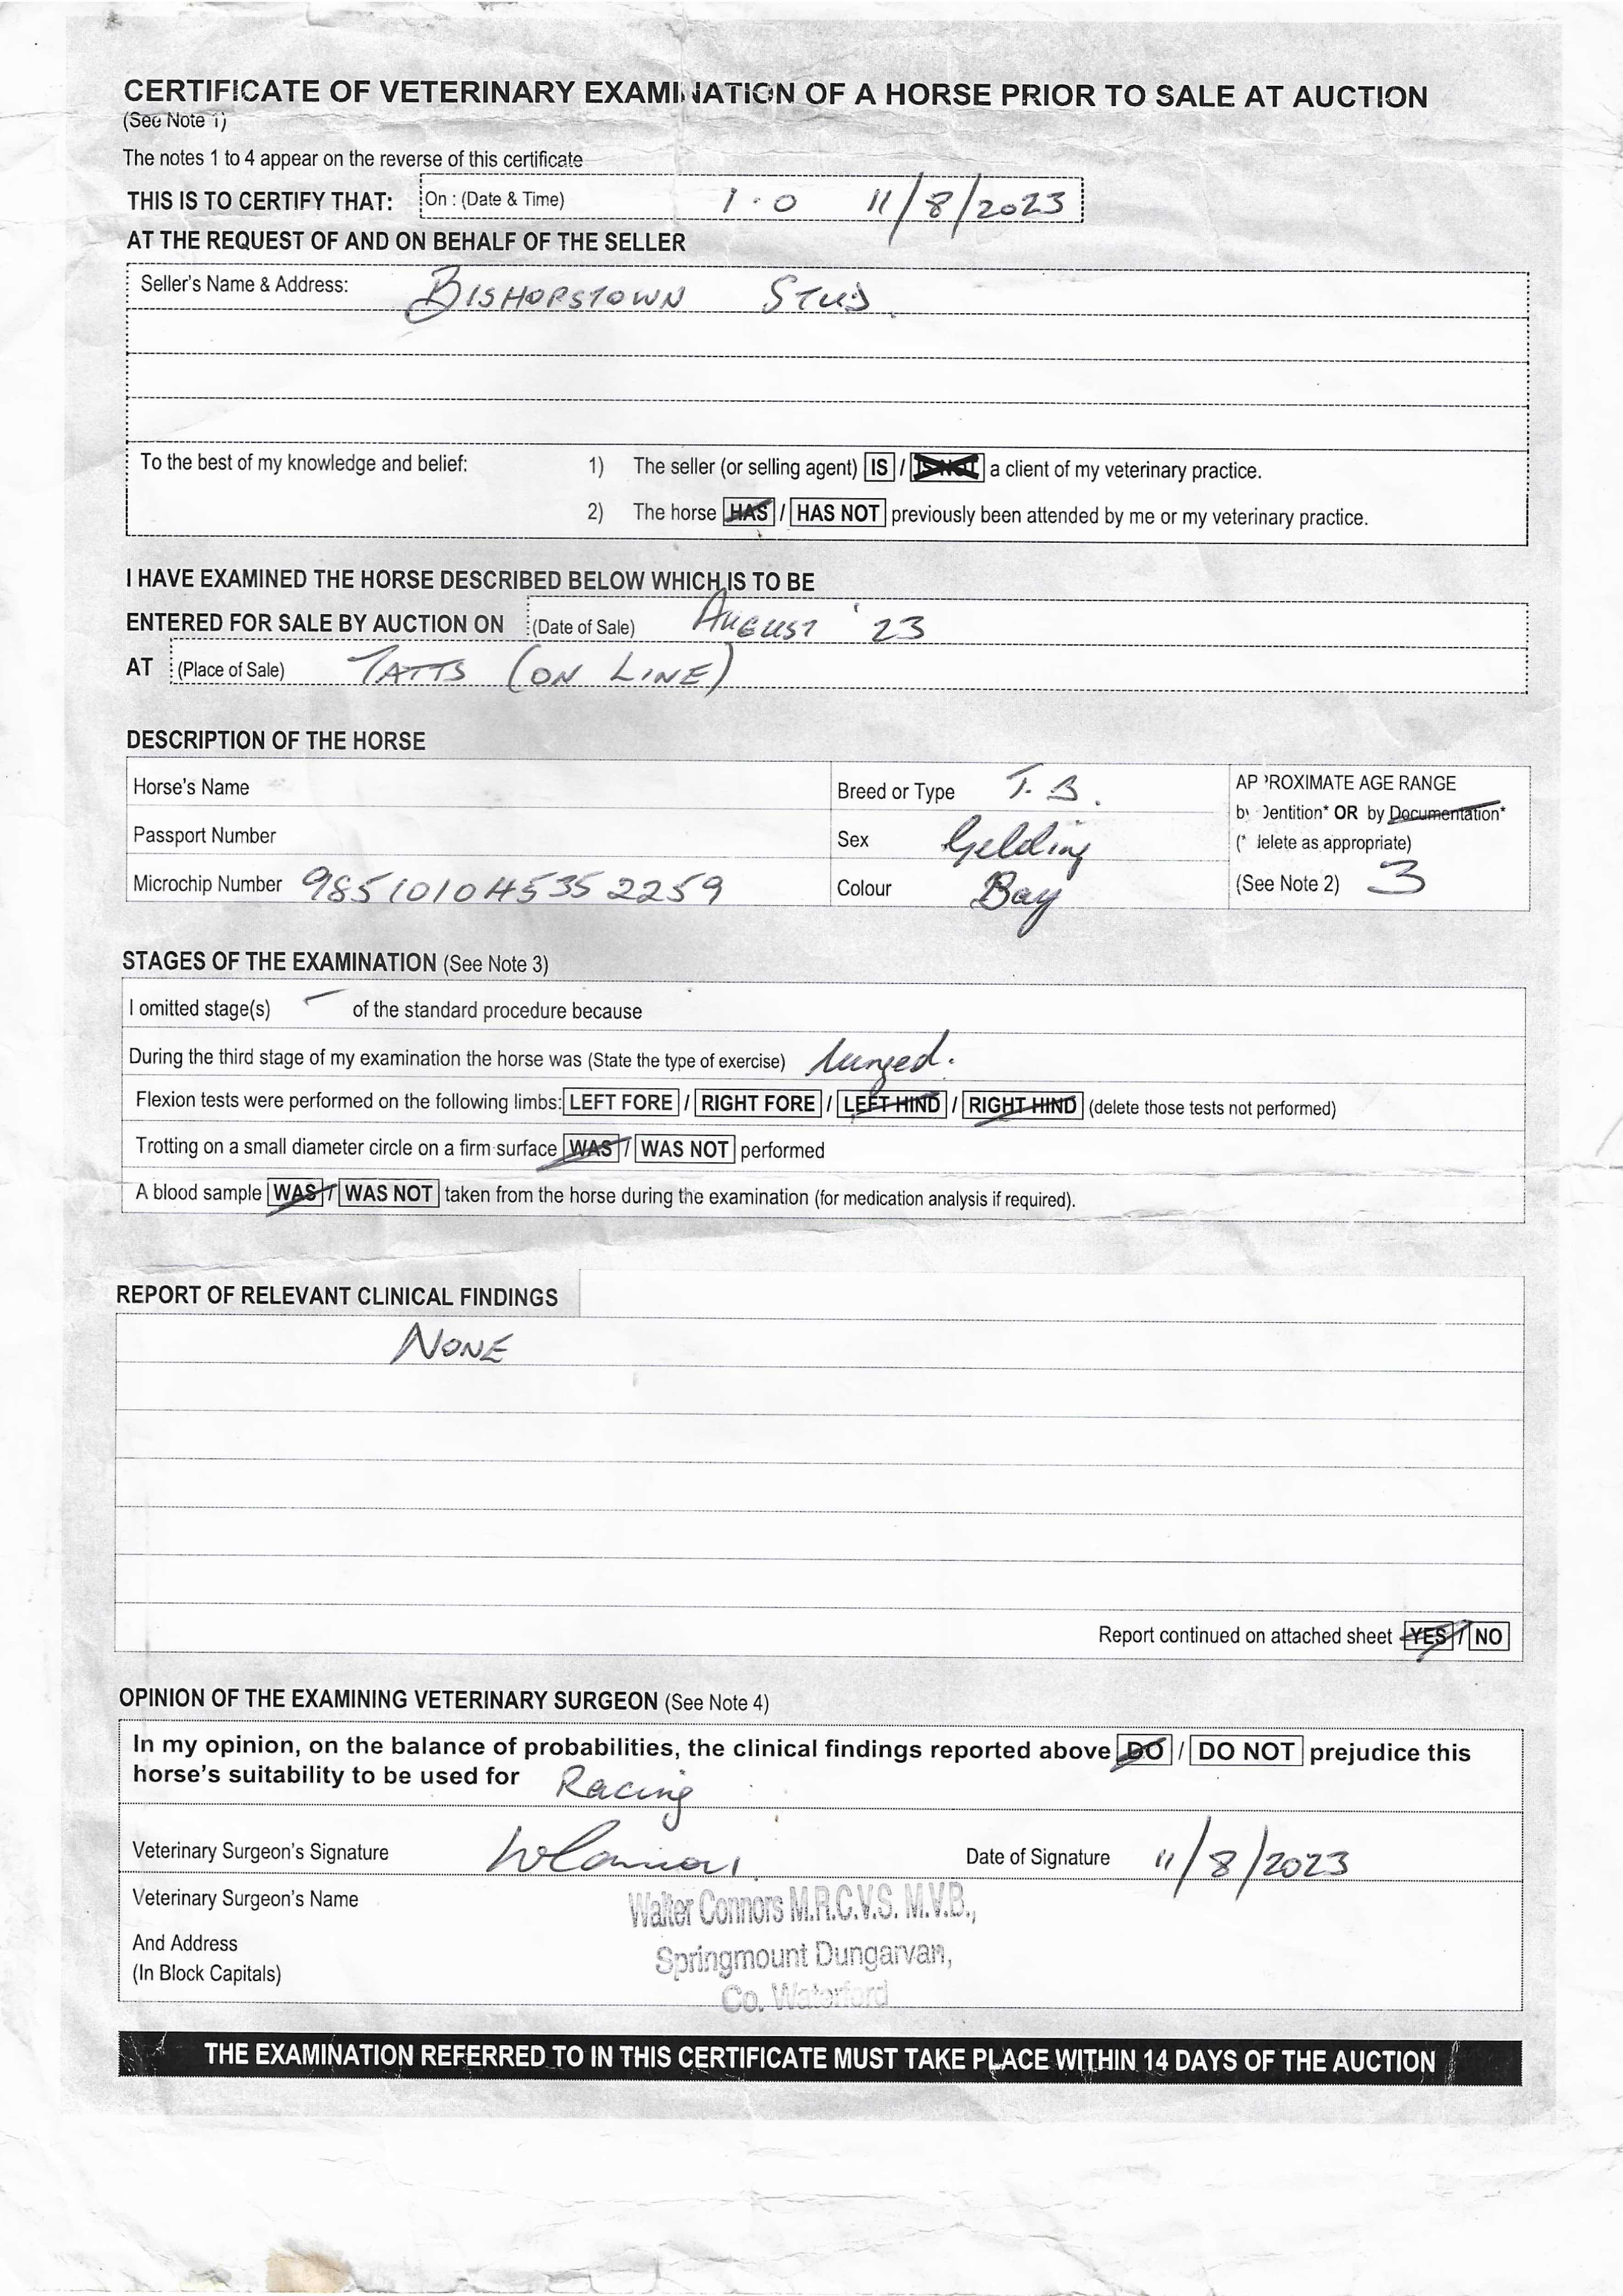 CERTIFICATE OF VETERINARY EXAMINATION OF A HORSE PRIOR TO SALE AT AUCTION
(See Note 1)
The notes 1 to 4 appear on the reverse of this certificate
THIS IS TO CERTIFY THAT: On : (Date & Time) 1.0 11/8/2023
AT THE REQUEST OF AND ON BEHALF OF THE SELLER
Seller's Name & Address: BISHOPSTOWN STUD
To the best of my knowledge and belief: 1) The seller (or selling agent) IS / IS NOT a client of my veterinary practice.
2) The horse HAS / HAS NOT previously been attended by me or my veterinary practice.
I HAVE EXAMINED THE HORSE DESCRIBED BELOW WHICH IS TO BE
ENTERED FOR SALE BY AUCTION ON (Date of Sale) AUGUST '23
AT (Place of Sale) TATTS (ON LINE)
DESCRIPTION OF THE HORSE
Horse's Name
Passport Number
Microchip Number 985101045352259
Breed or Type T.B.
Sex Gelding
Colour Bay
APPROXIMATE AGE RANGE
by Dentition* OR by Documentation*
(* delete as appropriate)
(See Note 2) 3
STAGES OF THE EXAMINATION (See Note 3)
I omitted stage(s) — of the standard procedure because
During the third stage of my examination the horse was (State the type of exercise) lunged.
Flexion tests were performed on the following limbs: LEFT FORE / RIGHT FORE / LEFT HIND / RIGHT HIND (delete those tests not performed)
Trotting on a small diameter circle on a firm surface WAS / WAS NOT performed
A blood sample WAS / WAS NOT taken from the horse during the examination (for medication analysis if required).
REPORT OF RELEVANT CLINICAL FINDINGS
NONE
Report continued on attached sheet YES / NO
OPINION OF THE EXAMINING VETERINARY SURGEON (See Note 4)
In my opinion, on the balance of probabilities, the clinical findings reported above DO / DO NOT prejudice this
horse's suitability to be used for Racing
Veterinary Surgeon's Signature WConnors Date of Signature 11/8/2023
Veterinary Surgeon's Name
And Address
(In Block Capitals)
Walter Connors M.R.C.V.S. M.V.B.,
Springmount Dungarvan,
Co. Waterford
THE EXAMINATION REFERRED TO IN THIS CERTIFICATE MUST TAKE PLACE WITHIN 14 DAYS OF THE AUCTION